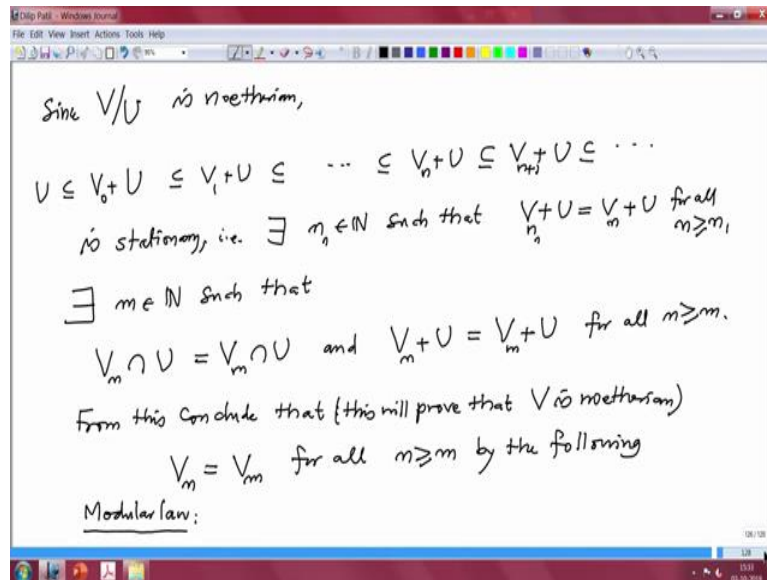 Dilip Patil - Windows Journal
File Edit View Insert Actions Tools Help
Sinc V/U is noetherian,
U ⊆ V₀+U ⊆ V₁+U ⊆ ... ⊆ Vₙ+U ⊆ Vₙ₊₁+U ⊆ ...
is stationary, i.e. ∃ n₁ ∈ ℕ such that V_{n₁}+U = Vₙ+U for all n ≥ n₁
∃ m ∈ ℕ such that
Vₙ ∩ U = Vₘ ∩ U and Vₙ+U = Vₘ+U for all n ≥ m.
From this conclude that (this will prove that V is noetherian)
Vₙ = Vₘ for all n ≥ m by the following
Modular law:
126 / 128
128
15:31